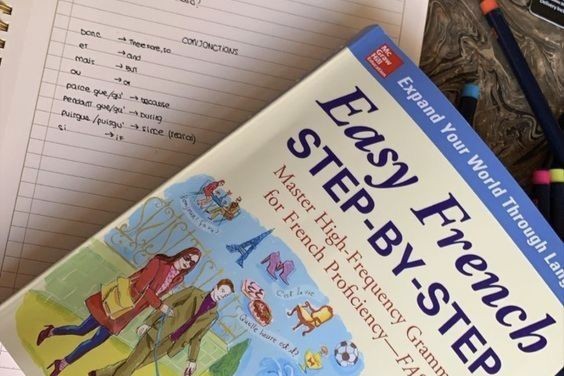 CONJONCTIONS
Donc → Therefore, so
et → and
mais → But
ou → or
parce que/qu' → because
Pendant que/qu' → During
Puisque/puisqu' → since (reason)
si → if
Mc
Graw
Hill
Education
Expand Your World Through Lang
Easy French
STEP-BY-STEP
Master High-Frequency Gramm
for French Proficiency—FA
C'est la vie
Quelle heure est-il?